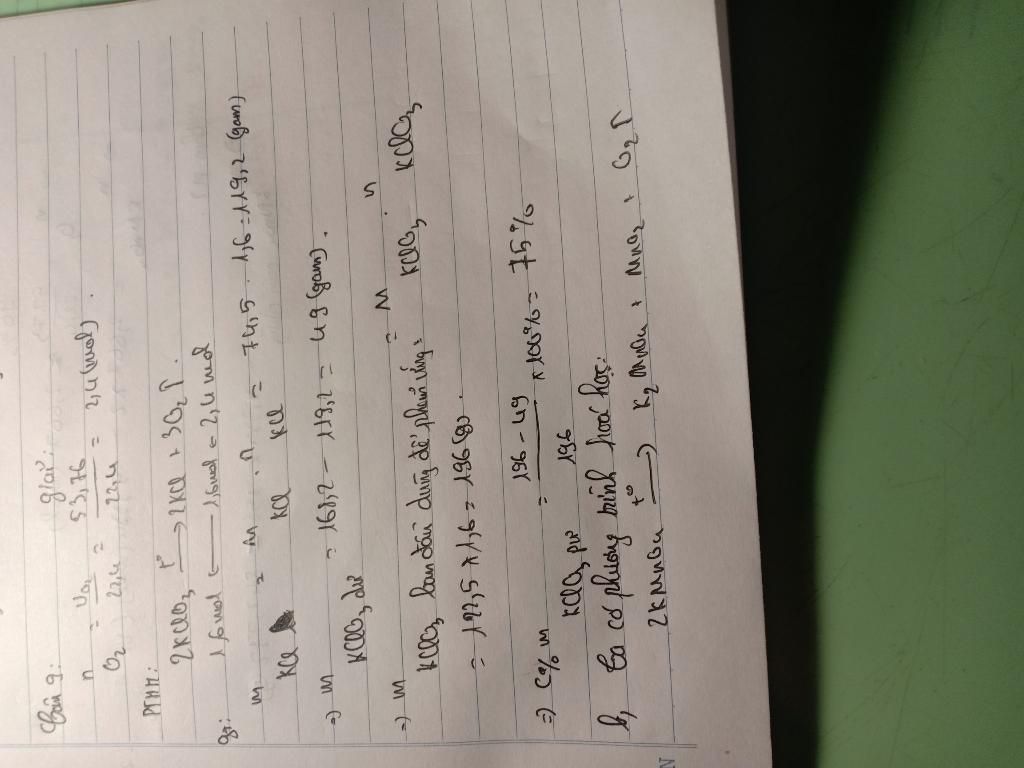 Câu 9: giải:
n O2 = VO2 / 22,4 = 53,76 / 22,4 = 2,4 (mol).
PTHH:
2KClO3 t° → 2KCl + 3O2 ↑.
gt: 1,6mol ← 1,6mol ← 2,4 mol
m KCl = M KCl . n KCl = 74,5 . 1,6 = 119,2 (gam)
=> m KClO3 dư = 168,2 - 119,2 = 49 (gam).
=> m KClO3 ban đầu dùng để phản ứng = M KClO3 . n KClO3
= 122,5 x 1,6 = 196 (g).
=> C% m KClO3 pư = 196 - 49 / 196 x 100% = 75%
b, Ta có phương trình hoá học:
2KMnO4 t° → K2MnO4 + MnO2 + O2 ↑
N